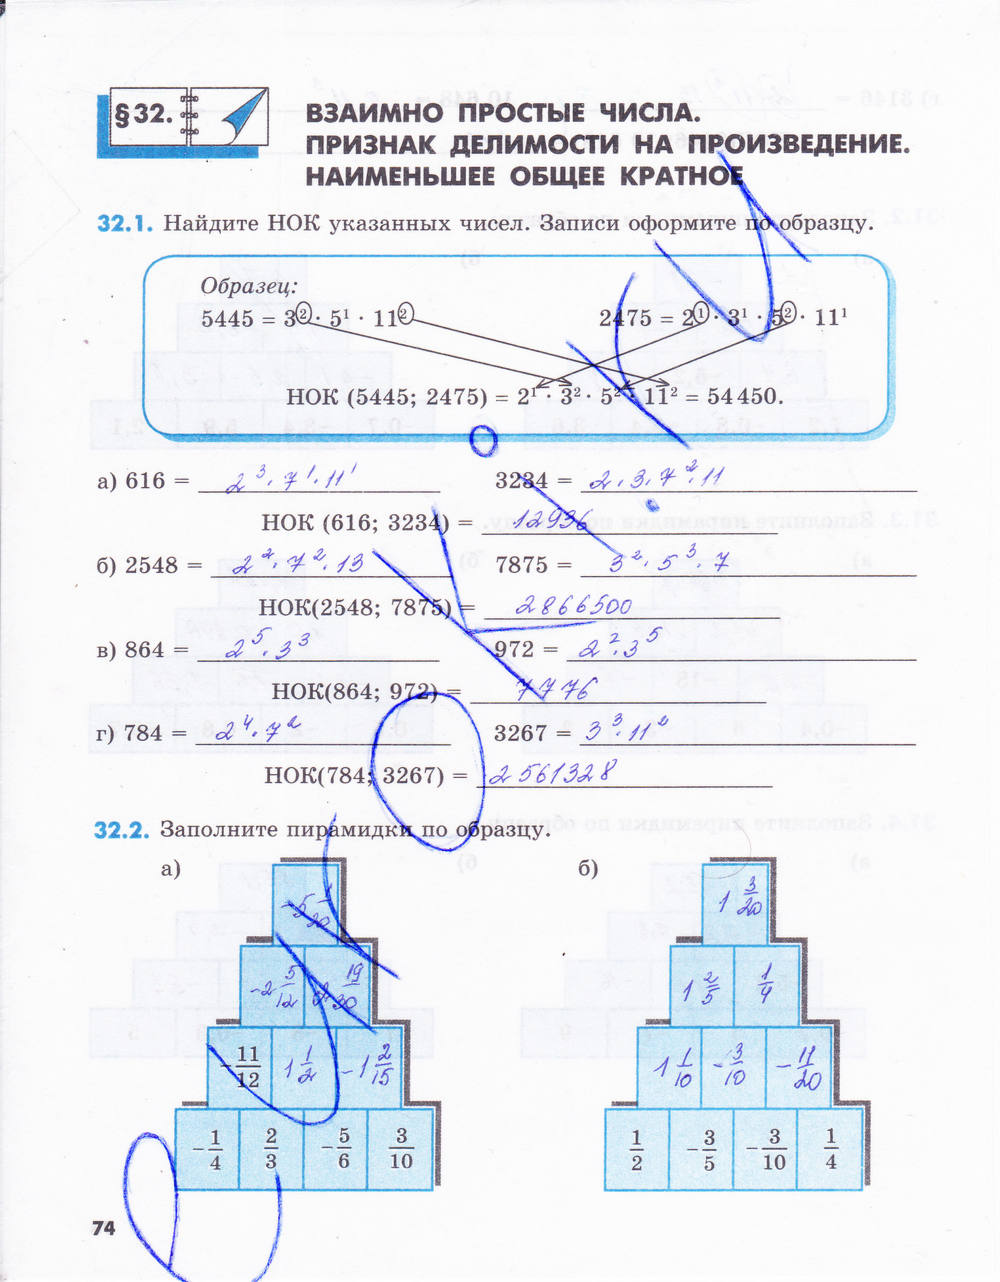 § 32.
ВЗАИМНО ПРОСТЫЕ ЧИСЛА.
ПРИЗНАК ДЕЛИМОСТИ НА ПРОИЗВЕДЕНИЕ.
НАИМЕНЬШЕЕ ОБЩЕЕ КРАТНОЕ
32.1. Найдите НОК указанных чисел. Записи оформите по образцу.
Образец:
5445 = 3² · 5¹ · 11² 2475 = 2¹ · 3¹ · 5² · 11¹
НОК (5445; 2475) = 2¹ · 3² · 5² · 11² = 54 450.
а) 616 = 2³ · 7¹ · 11¹ 3234 = 2 · 3 · 7² · 11
НОК (616; 3234) = 12936
б) 2548 = 2² · 7² · 13 7875 = 3² · 5³ · 7
НОК(2548; 7875) = 2866500
в) 864 = 2⁵ · 3³ 972 = 2² · 3⁵
НОК(864; 972) = 7776
г) 784 = 2⁴ · 7² 3267 = 3³ · 11²
НОК(784; 3267) = 2561328
32.2. Заполните пирамидки по образцу.
а) б)
1 3/20
-2 5/12 19/30 1 2/5 1/4
-11/12 1 1/2 -1 2/15 1 1/10 -3/10 -11/20
-1/4 2/3 -5/6 3/10 1/2 -3/5 -3/10 1/4
74